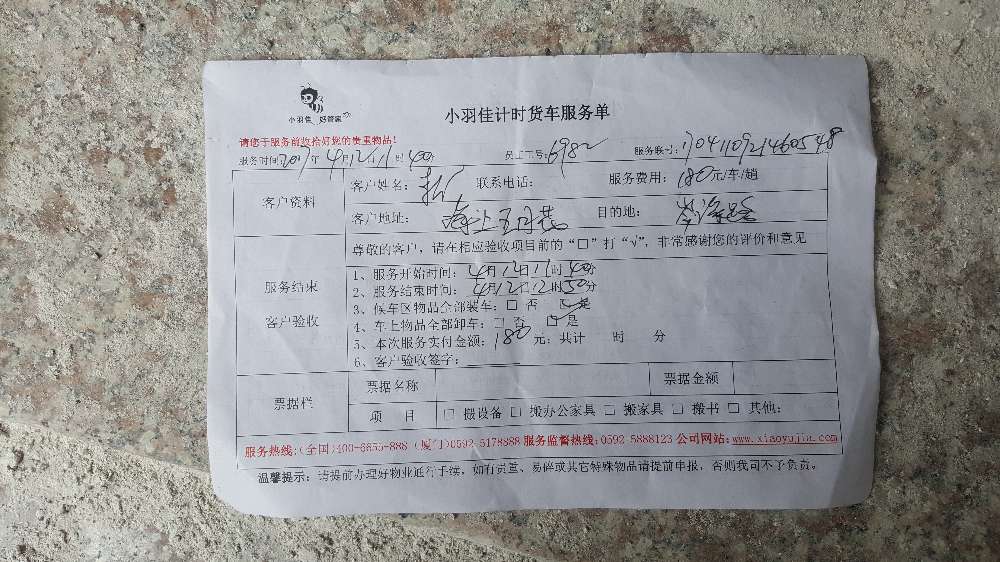 小羽佳 好管家
小羽佳计时货车服务单
请您于服务前收拾好您的贵重物品!
服务时间:2017年4月12日11时40分 员工工号:6982 服务联号:1704110921460548
客户资料
客户姓名: 联系电话: 服务费用:180元/车/趟
客户地址:海上五月花 目的地:
尊敬的客户,请在相应验收项目前的“□”打“√”,非常感谢您的评价和意见
服务结束
客户验收
1、服务开始时间:4月12日11时40分
2、服务结束时间:4月12日12时50分
3、候车区物品全部装车:□ 否 □ 是
4、车上物品全部卸车:□ 否 □ 是
5、本次服务实付金额:180元;共计 时 分
6、客户验收签字:
票据栏
票据名称 票据金额
项 目 □ 搬设备 □ 搬办公家具 □ 搬家具 □ 搬书 □ 其他:
服务热线:(全国)400-6655-888 (厦门)0592-5178888 服务监督热线:0592-5888123 公司网站:www.xiaoyujia.com
温馨提示:请提前办理好物业通行手续,如有贵重、易碎或其它特殊物品请提前申报,否则我司不予负责。